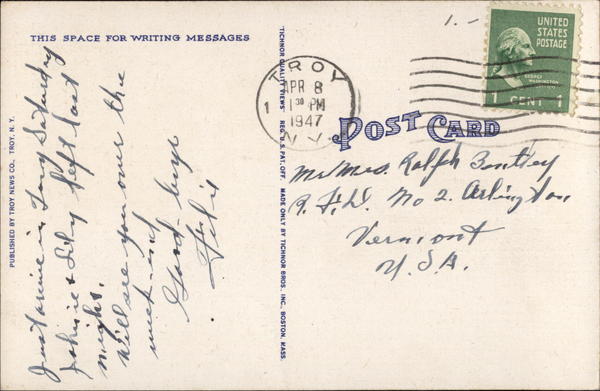 THIS SPACE FOR WRITING MESSAGES
Just arrive in Troy Saturday
Johnie & Lily left last
night.
Will see you over the
week-end
Good-bye
PUBLISHED BY TROY NEWS CO., TROY, N. Y.
TICHNOR QUALITY VIEWS REG. U. S. PAT. OFF. MADE ONLY BY TICHNOR BROS., INC., BOSTON, MASS.
1.-
TROY
APR 8
1 30 PM
1947
N.Y.
UNITED
STATES
POSTAGE
GEORGE
WASHINGTON
1 CENT 1
POST CARD
Mr Mrs. Ralph Bentley
R.F.D. No 2. Arlington
Vermont
U.S.A.